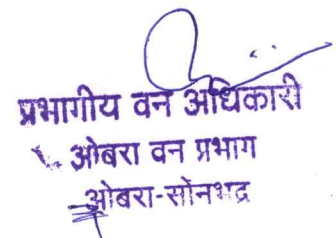 प्रभागीय वन अधिकारी
ओबरा वन प्रभाग
ओबरा-सोनभद्र